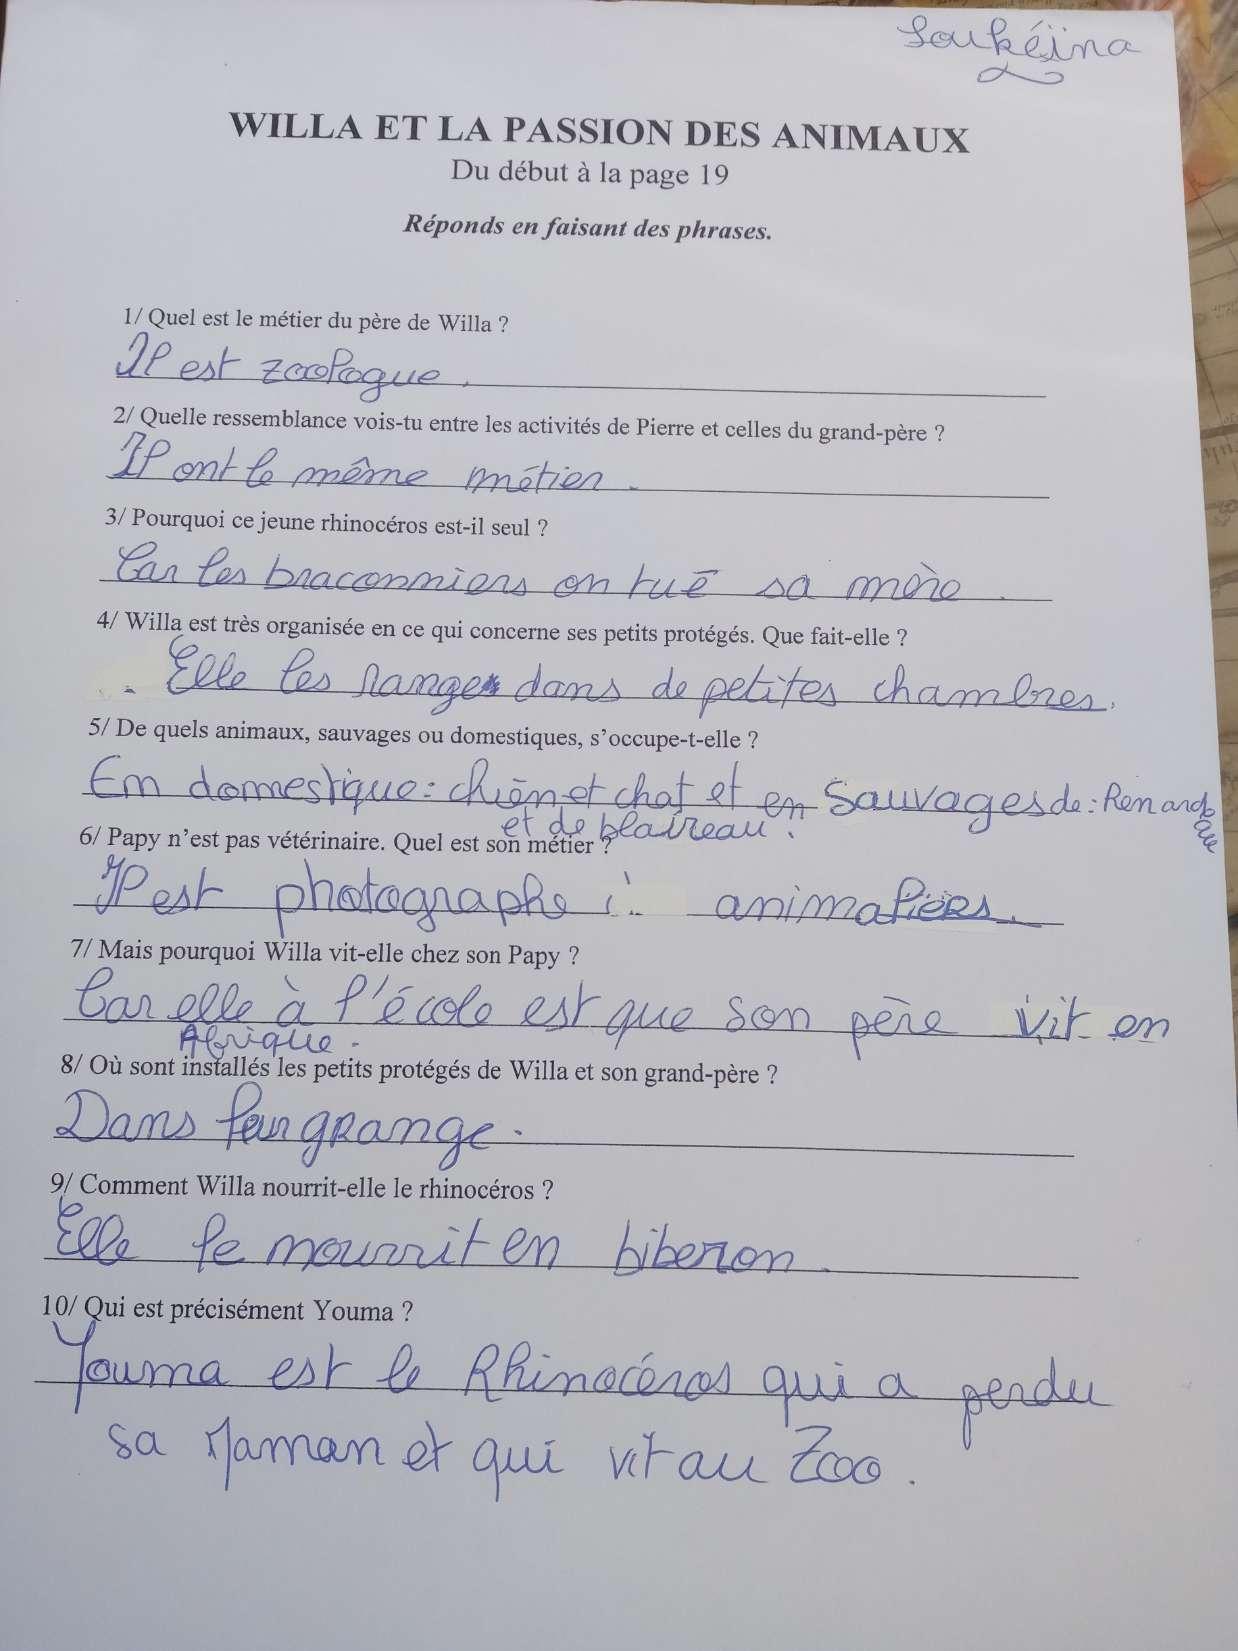 Soukéïna
WILLA ET LA PASSION DES ANIMAUX
Du début à la page 19
Réponds en faisant des phrases.
1/ Quel est le métier du père de Willa ?
Il est zoologue.
2/ Quelle ressemblance vois-tu entre les activités de Pierre et celles du grand-père ?
Il ont le même métier.
3/ Pourquoi ce jeune rhinocéros est-il seul ?
Car les braconniers on tué sa mère.
4/ Willa est très organisée en ce qui concerne ses petits protégés. Que fait-elle ?
Elle les range dans de petites chambres.
5/ De quels animaux, sauvages ou domestiques, s'occupe-t-elle ?
En domestique : chien et chat et en Sauvages de : Renardeau
et de blaireau.
6/ Papy n'est pas vétérinaire. Quel est son métier ?
Il est photographe animaliers.
7/ Mais pourquoi Willa vit-elle chez son Papy ?
Car elle à l'école est que son père vit en
Afrique.
8/ Où sont installés les petits protégés de Willa et son grand-père ?
Dans leur grange.
9/ Comment Willa nourrit-elle le rhinocéros ?
Elle le nourrit en biberon.
10/ Qui est précisément Youma ?
Youma est le Rhinocéros qui a perdu
sa Maman et qui vit au Zoo.